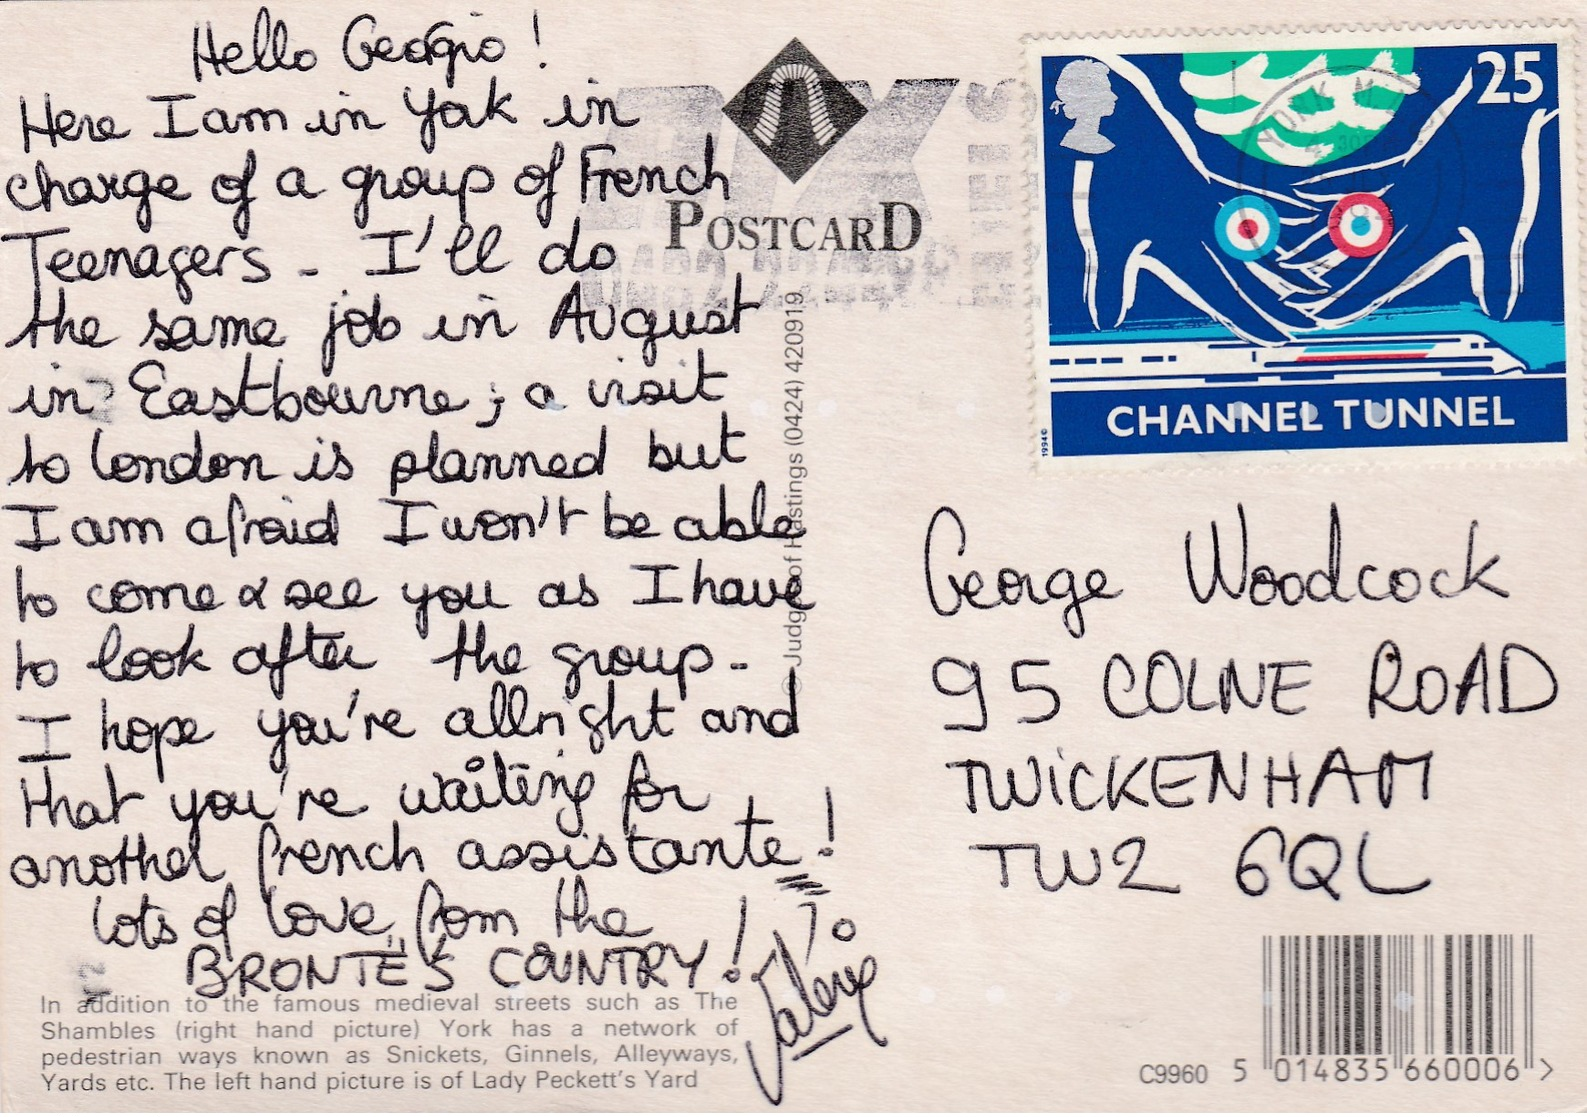 Hello Georgio !
Here I am in York in
charge of a group of French
Teenagers - I'll do
the same job in August
in Eastbourne ; a visit
to London is planned but
I am afraid I won't be able
to come & see you as I have
to look after the group -
I hope you're allright and
that you're waiting for
another french assistante !
Lots of love from the
BRONTË'S COUNTRY !
Valérie
In addition to the famous medieval streets such as The
Shambles (right hand picture) York has a network of
pedestrian ways known as Snickets, Ginnels, Alleyways,
Yards etc. The left hand picture is of Lady Peckett's Yard
POSTCARD
© Judges of Hastings (0424) 420919
25
CHANNEL TUNNEL
1994©
YORK
George Woodcock
95 COLNE ROAD
TWICKENHAM
TW2 6QL
C9960 5 014835 660006 >